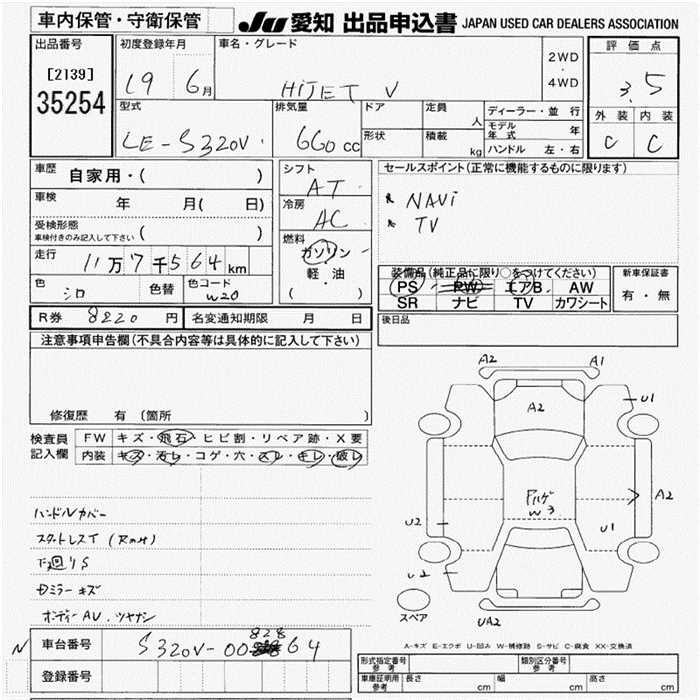 車内保管・守衛保管
JU 愛知 出品申込書 JAPAN USED CAR DEALERS ASSOCIATION
出品番号
[2139]
35254
初度登録年月
19 6月
車名・グレード
HIJET V
2WD
・
4WD
評価点
3.5
外装 内装
C C
型式
LE-S320V
排気量
660cc
ドア
形状
定員 人
積載 kg
ディーラー・並行
モデル年式 年
ハンドル 左・右
車歴 自家用・( )
車検 年 月( 日)
受検形態
車検付きのみ記入して下さい ( )
走行 11万7千564km
色 シロ 色替 色コード W20
シフト
AT
冷房
AC
燃料
ガソリン
軽・油
( )
セールスポイント(正常に機能するものに限ります)
NAVi
TV
装備品(純正品に限り○をつけてください)
PS PW エアB AW
SR ナビ TV カワシート
新車保証書
有・無
R券 8220円 名変通知期限 月 日
後日品
注意事項申告欄(不具合内容等は具体的に記入して下さい)
修復歴 有 (箇所 )
検査員
記入欄
FW キズ・飛石・ヒビ割・リペア跡・X要
内装 キズ・汚レ・コゲ・穴・スレ・キレ・破レ
ハンドルカバー
スタットレスT (Rのみ)
下廻りS
Dミラーキズ
ボディーAU.ツヤナシ
A2 A1
A2
U1
A2
W3
U1
U2
U2
UA2
スペア
A-キズ E-エクボ U-凹み W-補修跡 S-サビ C-腐食 XX-交換済
N
車台番号 S320V-00 828 64
登録番号
形式指定番号
参考
類別区分番号
参考
車庫証明用
参考
長さ cm 幅 cm 高さ cm